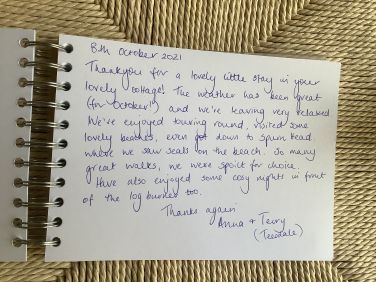 8th October 2021
Thankyou for a lovely little stay in your
lovely cottage! The weather has been great
(for October!) and we're leaving very relaxed
We've enjoyed touring round, visited some
lovely beaches, even down to spurn head,
where we saw seals on the beach. So many
great walks, we were spoilt for choice.
Have also enjoyed some cosy nights in front
of the log burner too.
Thanks again
Anna + Terry
(Teesdale)